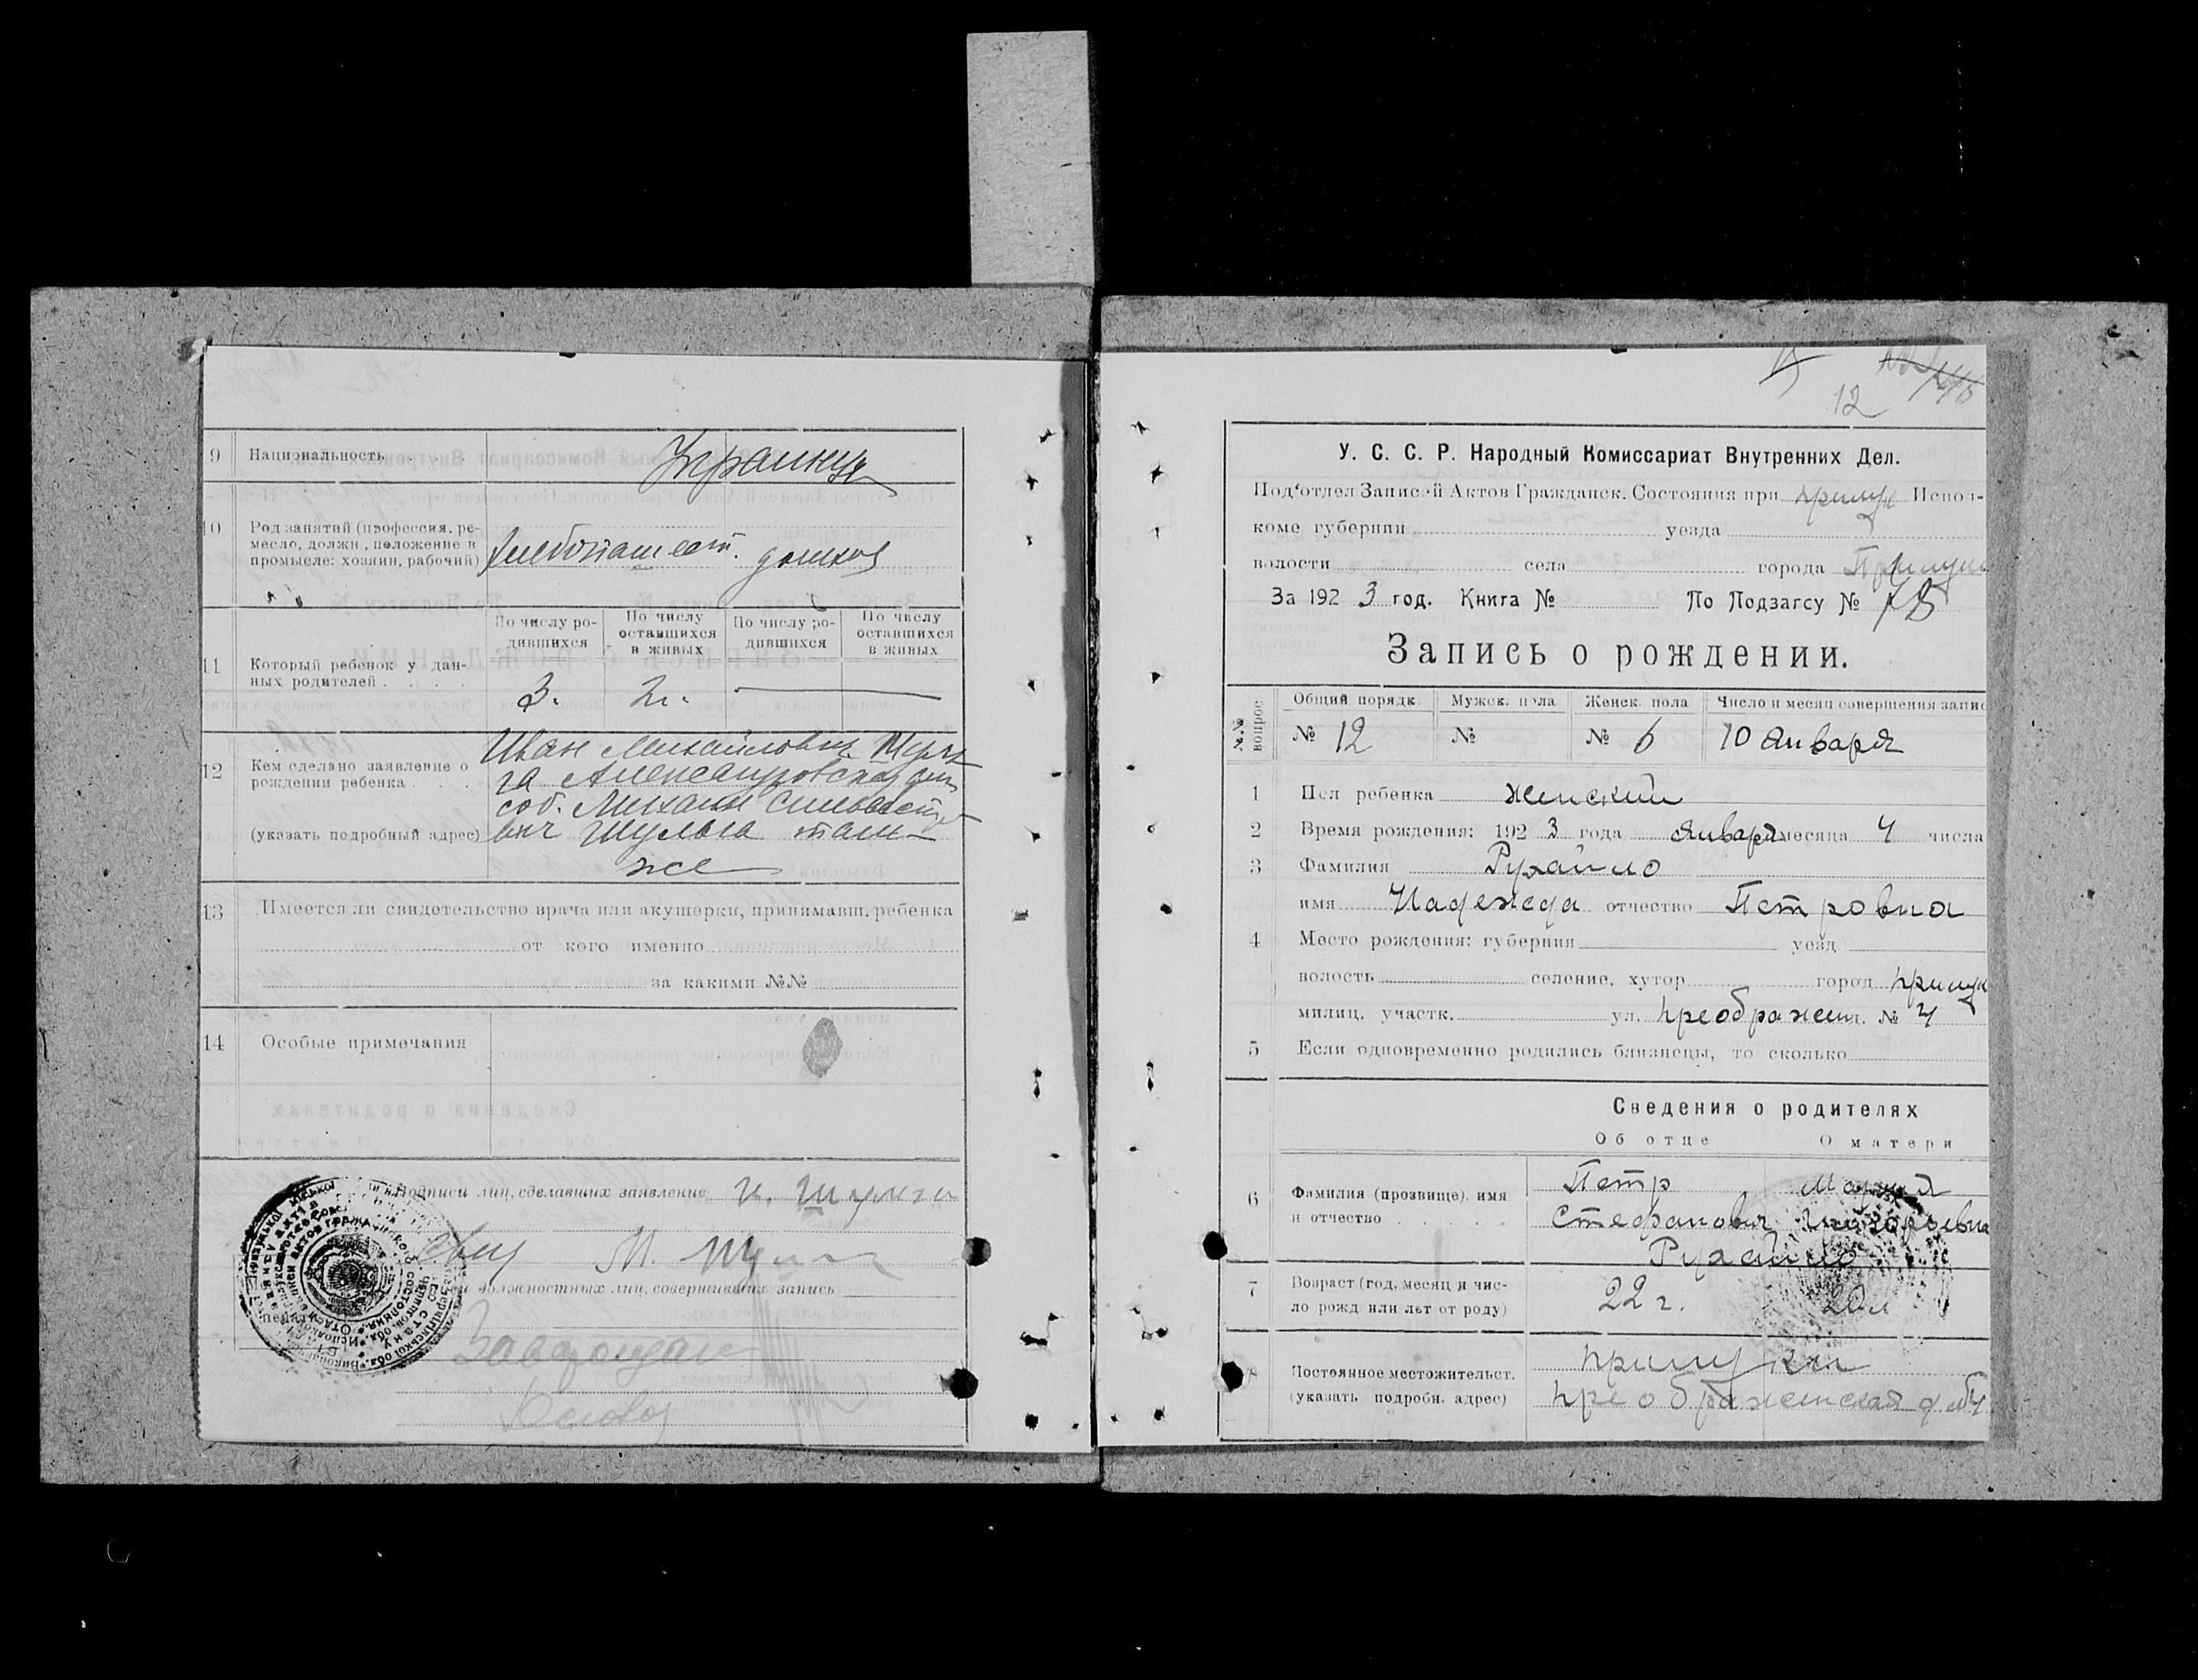 9 Национальность Украинцы
10 Род занятий (профессия, ре-
месло, должн., положение в
промысле: хозяин, рабочий) хлебопашест. домхоз
По числу ро-
дившихся
По числу
оставшихся
в живых
По числу ро-
дившихся
По числу
оставшихся
в живых
11 Который ребенок у дан-
ных родителей . . . .
3. 2.
Иван Михайлович Шуль
12 Кем сделано заявление о
рождении ребенка . . . га Александровская
соб. Михаил
(указать подробный адрес) вич Шульга там
же
13 Имеется ли свидетельство врача или акушерки, принимавш. ребенка
от кого именно
за какими №№
14 Особые примечания
Подписи лиц, сделавших заявление И. Шульга
М.
должностных лиц, совершивших запись
12
У. С. С. Р. Народный Комиссариат Внутренних Дел.
Под'отдел Записей Актов Гражданск. Состояния при Прилук Испол-
коме губернии уезда
волости села города Прилуки
За 1923 год. Книга № По Подзагсу №
Запись о рождении.
№№ вопрос
Общий порядк. Мужск. пола Женск. пола Число и месяц совершения запис
№ 12 № № 6 10 Января
1 Пол ребенка женский
2 Время рождения: 1923 года Января месяца 4 числа
3 Фамилия Рухайло
имя Надежда отчество Петровна
4 Место рождения: губерния уезд
волость селение, хутор город Прилук
милиц. участк. ул. Преображен. № 4
5 Если одновременно родились близнецы, то сколько
Сведения о родителях
Об отце О матери
6 Фамилия (прозвище) имя
и отчество . . . . .
Петр Мария
Стефанович
Рухайло
7 Возраст (год, месяц и чис-
ло рожд. или лет от роду) 22 г. 20 л
8 Постоянное местожительст.
(указать подробн. адрес)
Прилуки
Преображенская д №4